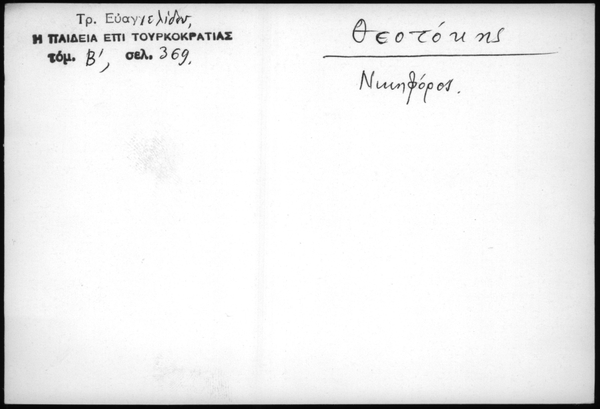 Τρ. Εὐαγγελίδου,
Η ΠΑΙΔΕΙΑ ΕΠΙ ΤΟΥΡΚΟΚΡΑΤΙΑΣ
τόμ. Β', σελ. 369.
Θεοτόκης
Νικηφόρος.